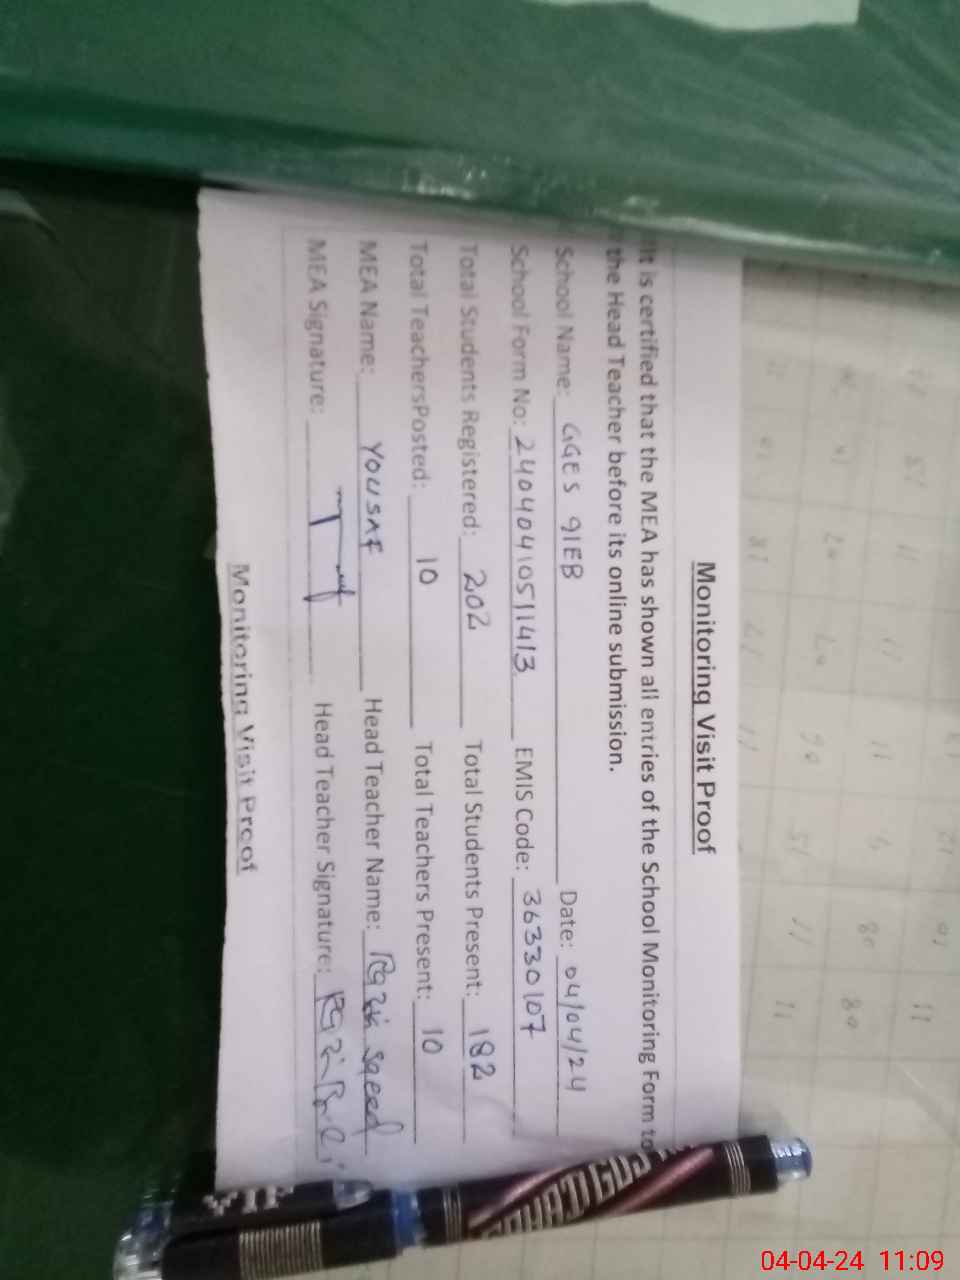 Monitoring Visit Proof
It is certified that the MEA has shown all entries of the School Monitoring Form to
the Head Teacher before its online submission.
School Name: GGES 91EB Date: 04/04/24
School Form No: 24040410511413 EMIS Code: 36330107
Total Students Registered: 202 Total Students Present: 182
Total TeachersPosted: 10 Total Teachers Present: 10
MEA Name: YOUSAF Head Teacher Name: Saeed
MEA Signature: Head Teacher Signature:
Monitoring Visit Proof
VIP
04-04-24 11:09